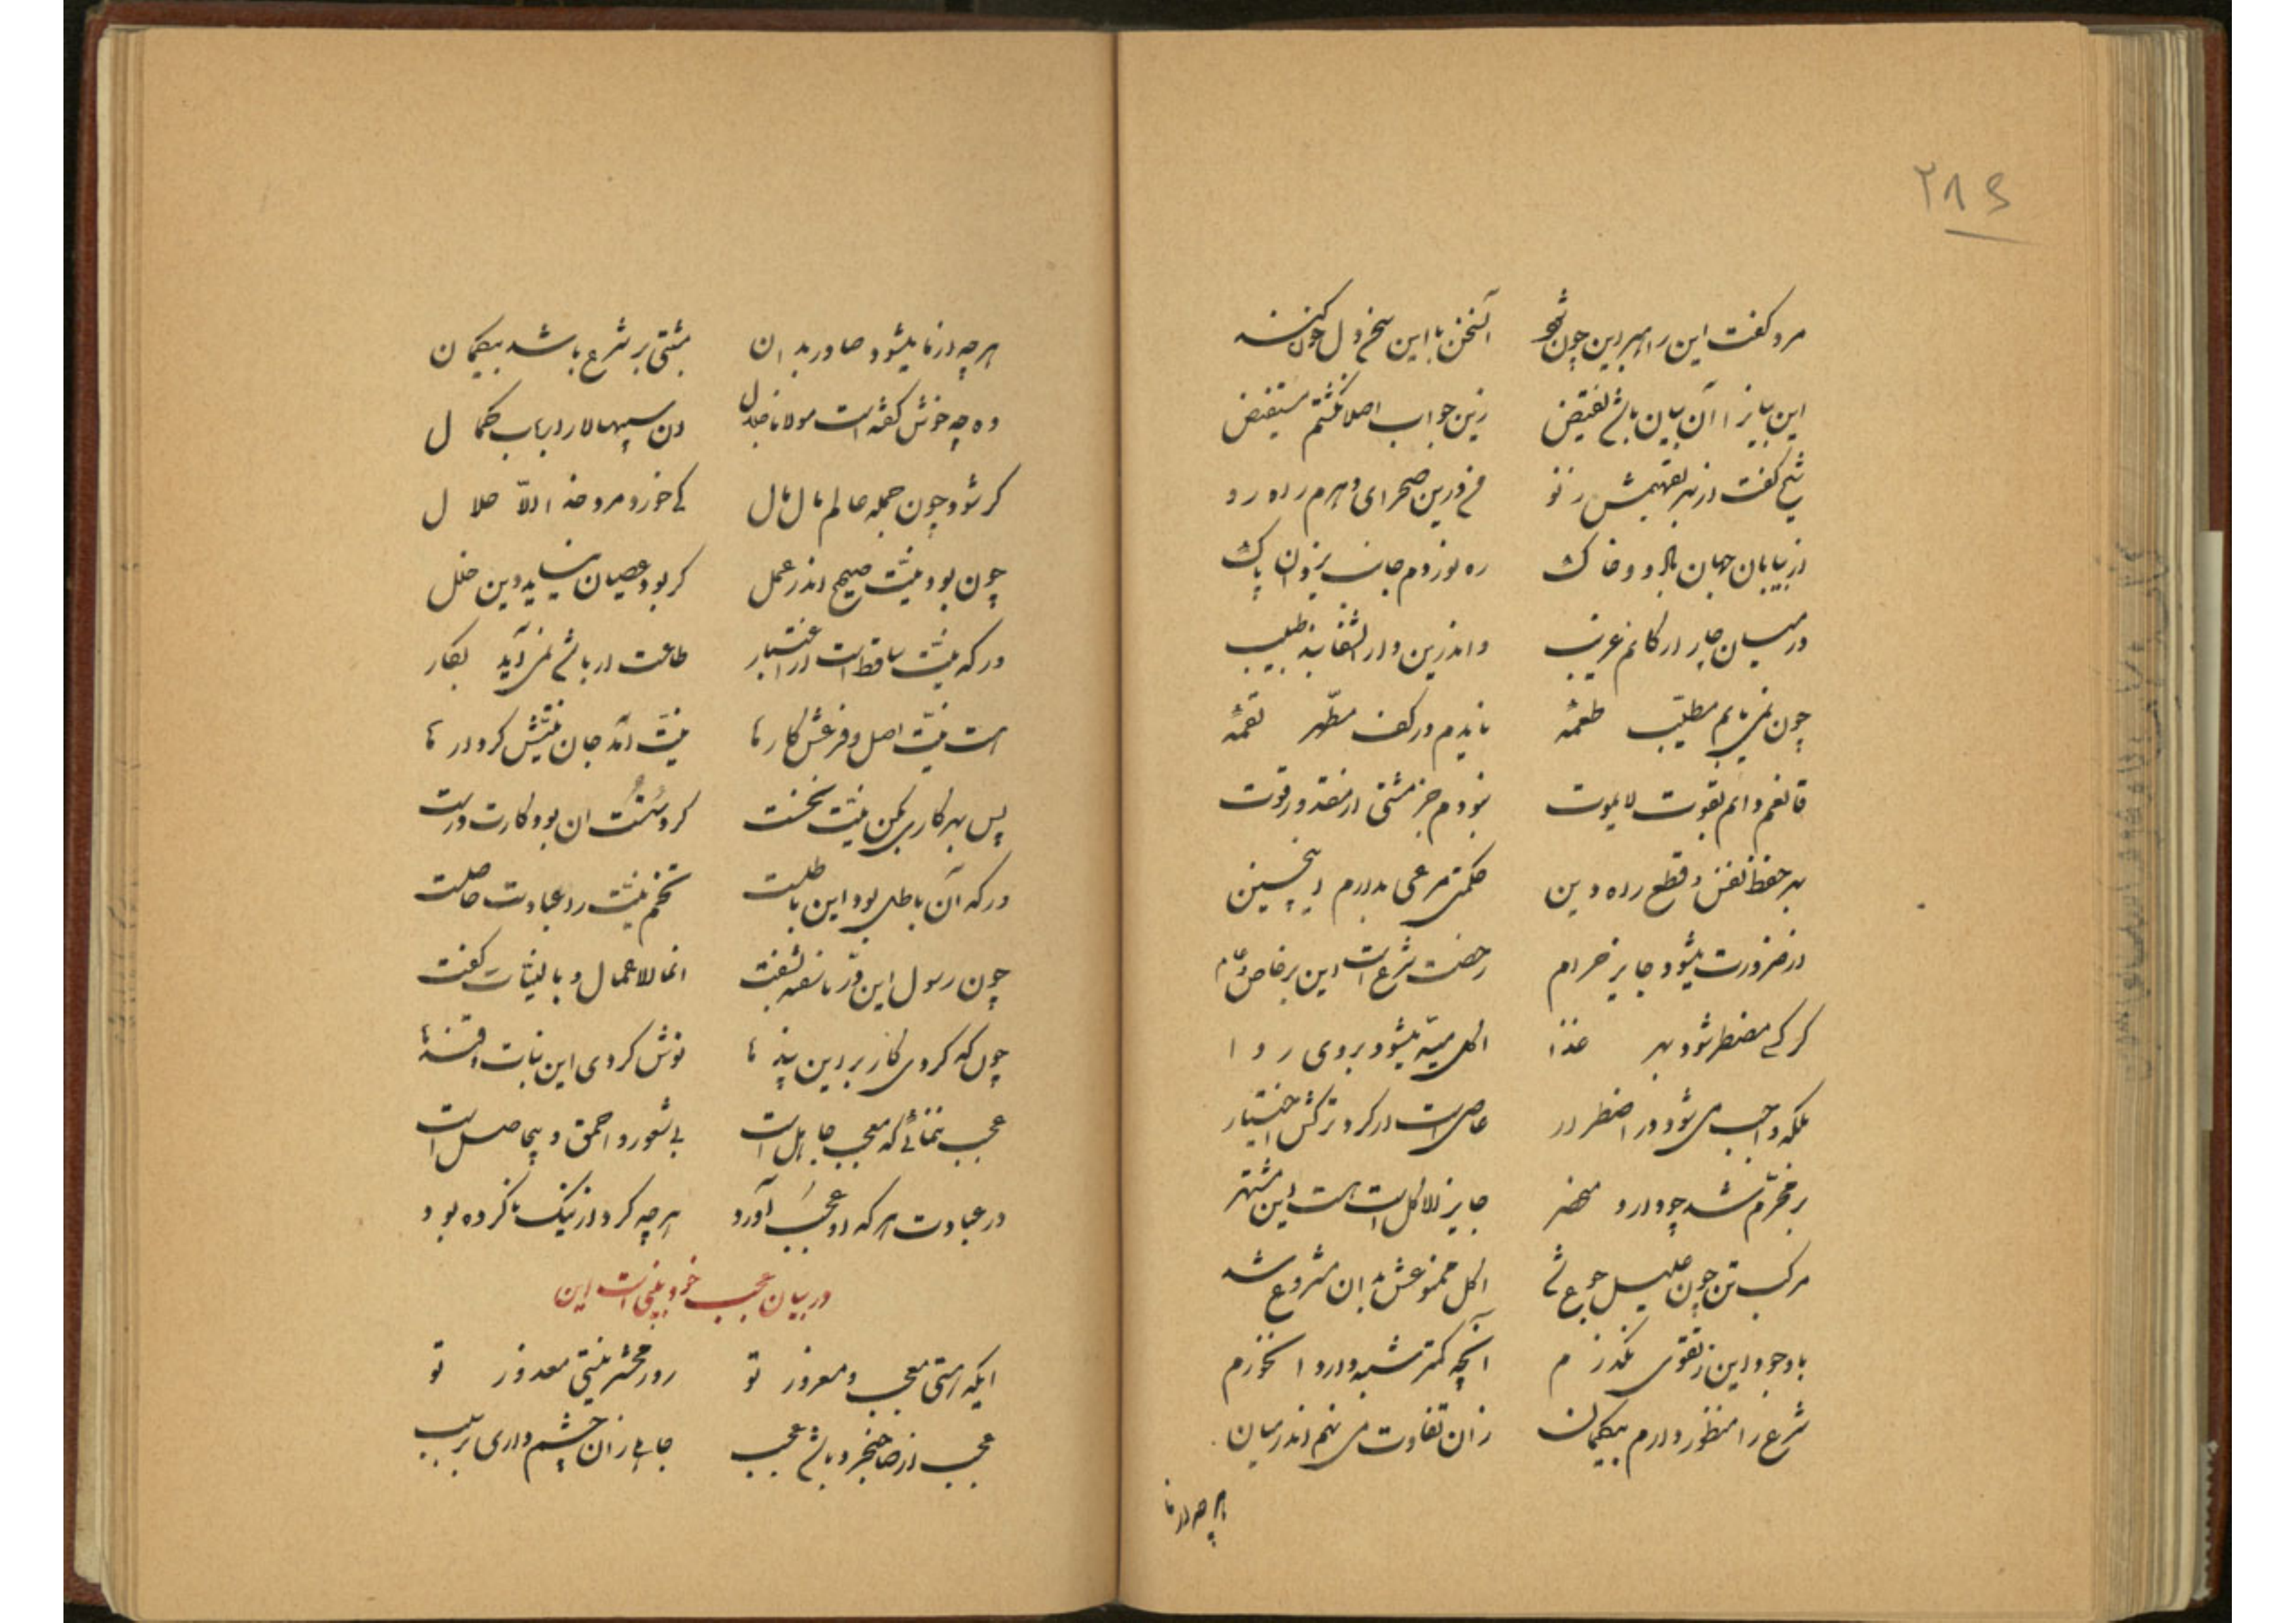 ۲۸۶
مرد گفت این را بهر این چون شو آنسخن با این سخن ول چون کنند
این بیانرا آن بیان باشد نقیض زین جواب اصلا نگشتم مستفیض
شیخ گفت از بهر تفهیمش ز نو من درین صحرای وهم راه رو
از بیابان جهان باد و خاک ره نوردم جانب یزدان پاک
در میان چار ارکانم غریب و اندرین دار الشفا بند طبیب
چون نمی یابم مطیّب طعمهٔ ناید م در کف مطهّر لقمهٔ
قانعم دائم بقوت لایموت نبودم جز مشتی از مقدور قوت
بهر حفظ نفس و قطع راه دین حکمتی مرعی بدارم اینچنین
از ضرورت میشود جایز حرام رخصت شرع است این بر خاص و عام
گر کسی مضطر شود بهر غذا اکل میته میشود بروی روا
بلکه واجب می شود در اضطرار عاصی است ار کرد ترکش اختیار
بر محرّم شد چو وارد مضطر جایز الاکل است هست این مشتهر
مرکب تن چون علیل جوع شد اکل ممنوعش بدان مشروع شد
با وجود این ز تقوی نگذرم آنچه کمتر شبه دارد آنخورم
شرع را منظور دارم بیگمان زان تفاوت می نهم اندر میان
هر چه از ما
هر چه از ما میشود صادر بدان مبتنی بر شرع باشد بیگمان
وه چه خوش گفته است مولانا جلال آن سپهسالار ارباب کمال
گر شود چون جمله عالم مال مال کی خورد مرد خدا الّا حلال
چون بود نیّت صحیح اندر عمل گر بود عصیان نیاید دین خلل
ور که نیّت ساقط است از اعتبار طاعت ار باشد نمی آید بکار
هست نیّت اصل و فرعش کارها نیّت آمد جان نیّتش کردارها
پس بهر کاری بکن نیّت نخست گر درستت آن بود کارت درست
ور که آن باطل بود این باطلست تخم نیّت را عبادت حاصلست
چون رسول این درّ ناسفته بسفت انما الاعمال و بالنیّات گفت
چون که کردی کار بر این پندها نوش کردی این نبات و قندها
عجب ننمائی که معجب جاهل است بی شعور و احمق و بیحاصل است
در عبادت هر که او عُجب آورد هر چه کرد از نیک ناکرده بود
در بیان عجب خود بینی است این
ایکه هستی معجب و مغرور تو روز محشر نیستی معذور تو
عجب از صاحبخرد باشد عجب جاهلی زان چشم داری بی سبب